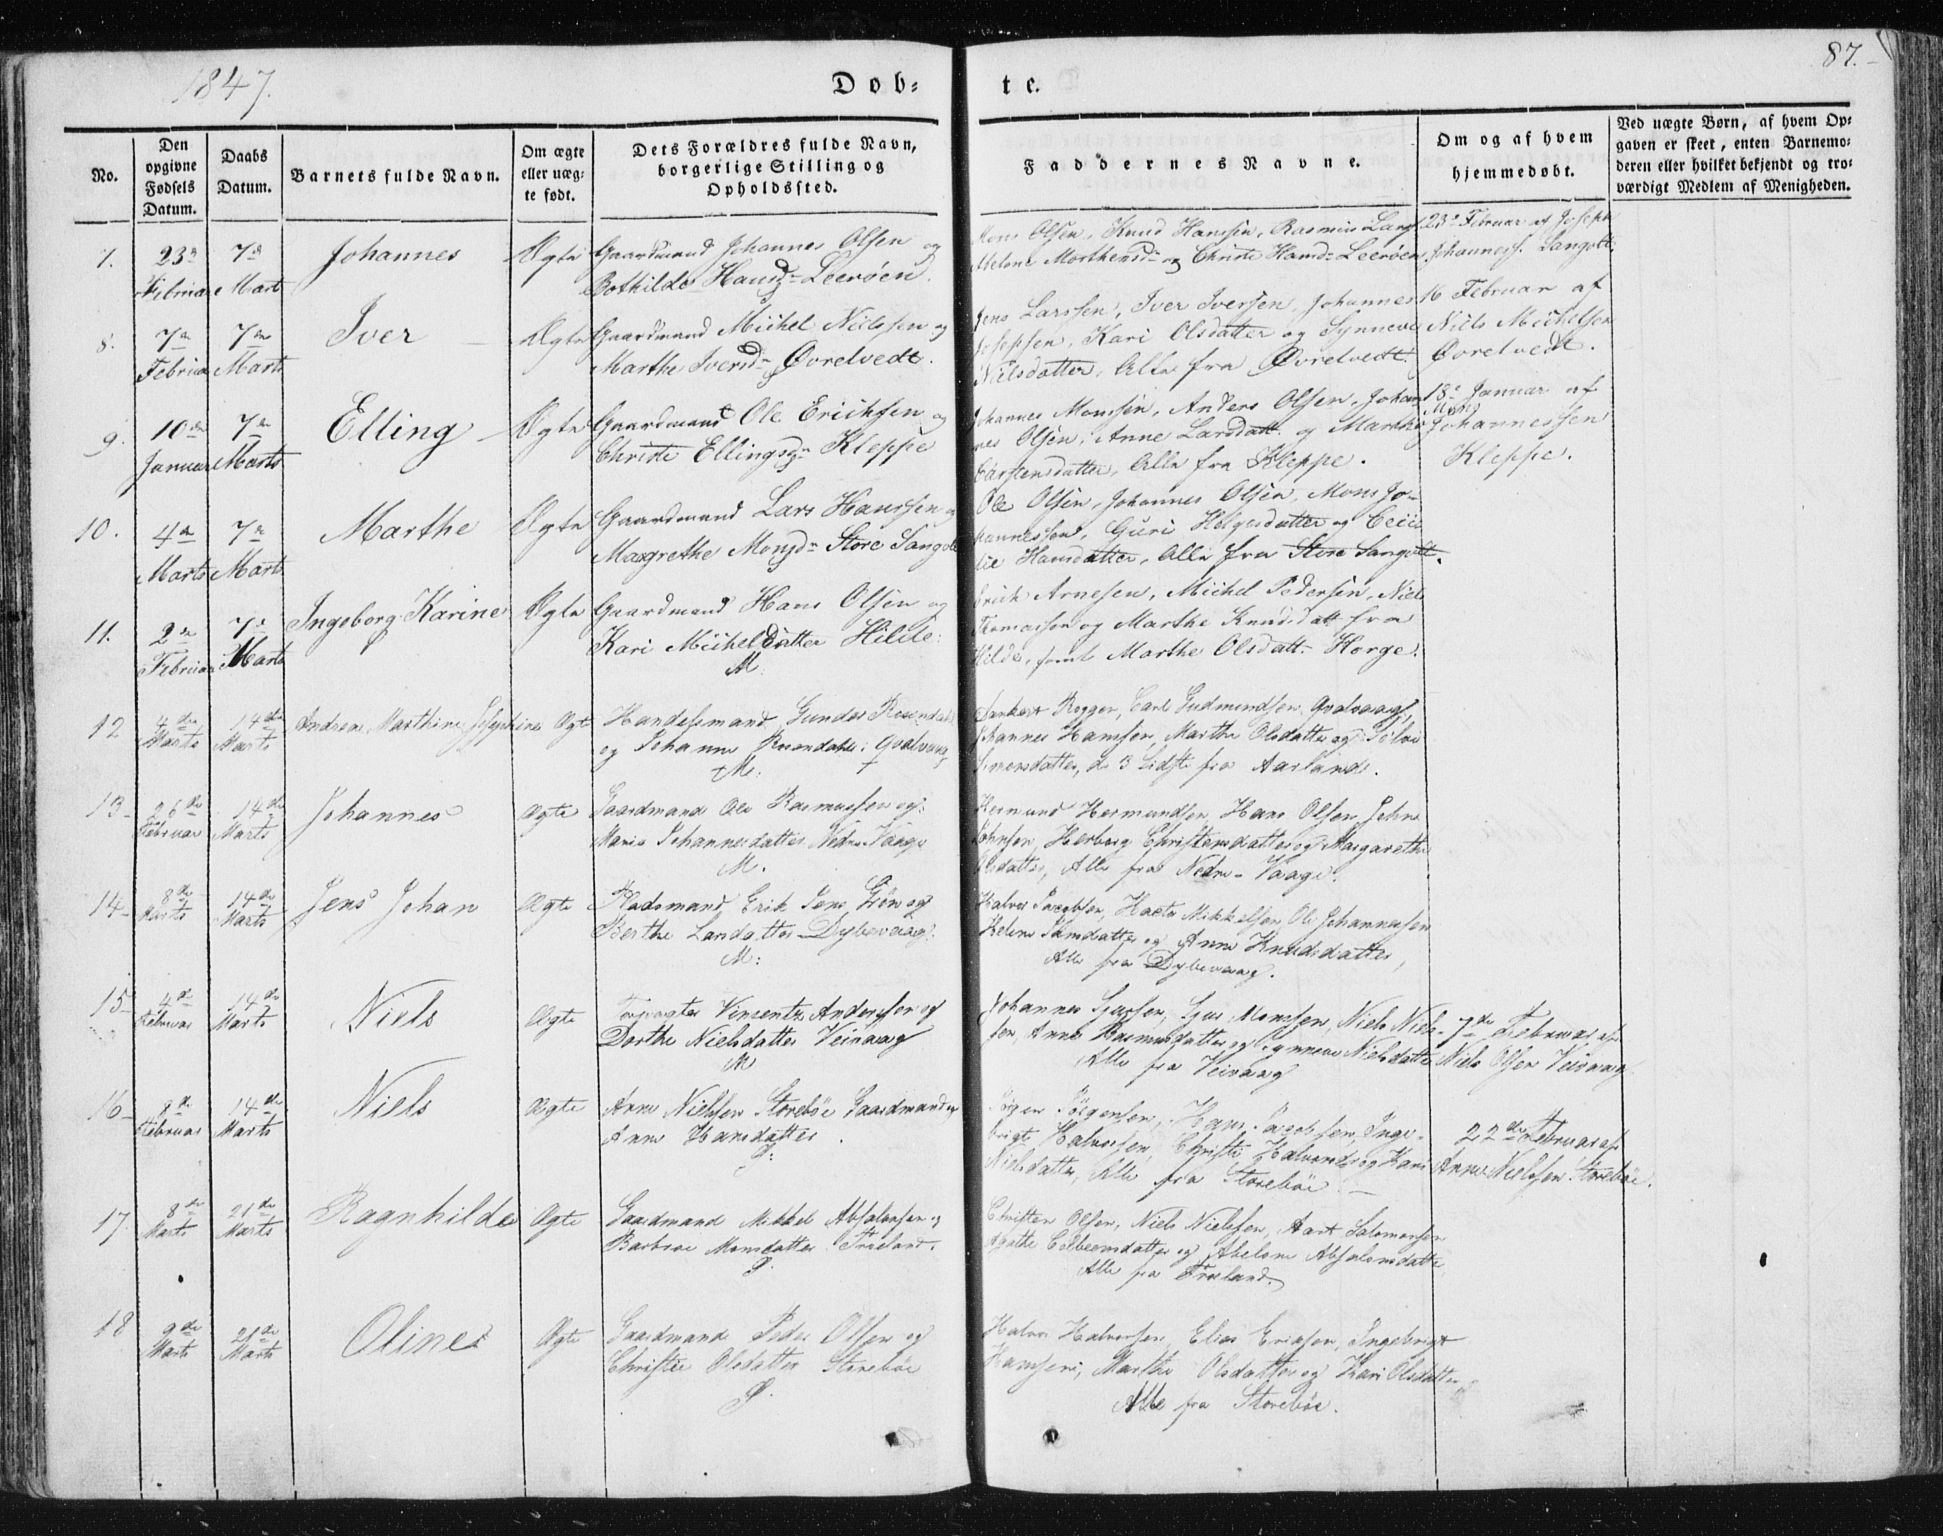 1847.
Døb=
te.
87.
No.
Den opgivne Fødsels Datum.
Daabs Datum.
Barnets fulde Navn.
Om ægte eller uægte født.
Dets Forældres fulde Navn, borgerlige Stilling og Opholdssted.
Faddernes Navne.
Om og af hvem hjemmedøbt.
Ved uægte Børn, af hvem Opgaven er skeet, enten Barnemoderen eller hvilket bekjendt og troværdigt Medlem af Menigheden.
7. 23 7 Johannes Ægte Gaardmand Johannes Olsen og
Februar Marts Bothilde Hansd Leerøen.
Olsen, Knud Hanssen, Rasmus Lars
Abelone Morthensd og Christi Hansd Leerøen
23 Februar af Joseph
Johanness. Sangolt
8. 7 7 Iver Ægte Gaardmand Michel Nielssen og
Februar Marts Marthe Iversd Øvrelvedt.
Jens Larssen, Iver Iversen, Johannes
Josepsen, Kari Olsdatter og Synneve
Nielsdatter, Alle fra Øvretvedt.
16 Februar af
Niels Michelsen
Øvretvedt.
9. 10 7 Elling Ægte Gaardmand Ole Erichsen og
Januar Marts Christi Ellingsd Kleppe
Johannes Monssen, Anders Olsen, Johan
nes Olsen, Anne Larsdatt. og Marthe
Carstensdatter, Alle fra Kleppe.
18 Januar af
Mons
Johannessen
Kleppe.
10. 4 7 Marthe Ægte Gaardmand Lars Hanssen og
Marts Marts Margrethe Monsd Store Sangolt
Ole Olsen, Johannes Olsen, Mons Jo-
hannessen, Guri Helgesdatter og Ceci
lie Hansdatter, Alle fra Store Sangolt.
11. 2 7 Ingeborg Karine Ægte Gaardmand Hans Olsen og
Februar Marts Kari Micheldatter Hilde.
M.
Erich Arnesen, Michel Pedersen, Niels
Thomassen og Marthe Knudsdatt fra
Hilde, samt Marthe Olsdatt Horge.
12 4de 14de Andrea Marthine Josephine Ægte Handelsmand Gunder Rosendahl
Marts Marts og Johanne Rosendahl: Qvalvaag
M:
Rogger, Carl Gudmundsen Qvalvaag,
Johannes Hanssen, Marthe Olsdatter og
de 3 Sidste fra Aarland.
13- 26de 14de Johannes Ægte Gaardmand Ole Rasmussen og
Februar Marts Maria Johannesdatter Nedre Vaage
M.
Hermund Hermundsen, Hans Olsen, John
Johnsen, Herborg Christensdatter og Margarethe
Olsdatter, Alle fra Nedre-Vaage.
14- 8de 14de Jens Johan Ægte Pladsmand Erik Jens. Grøn og
Marts Marts Berthe Larsdatter Dybevaag.
M:
Halvor Jacobsen, Mikkelsen, Ole Johannessen
Helene og Anne Knudsdatter,
Alle fra Dybevaag.
15- 4de 14de Niels Ægte Vinsents Anderssen og
Februar Marts Dorthe Nielsdatter Veivaag
M
Johannes Sjursen, Sjur Monsen, Niels Niel-
sen, Anne Rasmusdatter og Synneve Nielsdatter
Alle fra Veivaag
7de Februar af
Niels Olsen Veivaag
16- 9de 14de Niels Ægte Arne Nielsen Storebøe Gaardmand og
Februar Marts Anne Hansdatter.
Jørgen Jørgensen, Hans Jacobsen, Inge-
brigt Halvorsen, Christi Halvorsd og Kari
Nielsdatter, Alle fra Storebøe.
22de Februar af
Arne Nielsen Storebøe.
17. 8de 21de Ragnhilde Ægte Gaardmand Mikkel Absalonsen og
Marts Marts Barbroe Monsdatter Frøland.
Christen Olsen, Niels Nielsen, Salomonsen
Agathe og Abelone Absalonsdatter
Alle fra Frøland.
18 9de 21de Oline Ægte Gaardmand Peder Olsen og
Marts Marts Christie Olsdatter Storebøe
Halvor Halvorsen, Elias Eriksen, Ingebrigt
Hanssen, Marthe Olsdatter og Kari Olsdatter
Alle fra Storebøe.